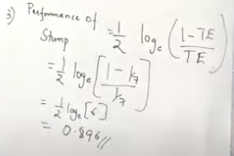 3) Performance of Stump = 1/2 log_e ( (1-TE) / TE )
= 1/2 log_e [ (1 - 1/7) / (1/7) ]
= 1/2 log_e [6]
= 0.896 //